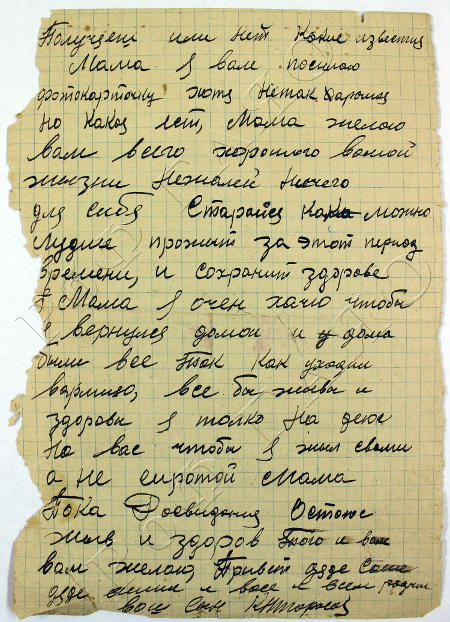 Получаеш или нет Какие известия
Мама я вам посилаю
фотокарточку хотя Нетак Харошая
но Какая ест, Мама желаю
вам всего хорошего вашой
жизни Нежалей Ничего
для себя Старайся как можно
лудше прожит за этот период
Времени, и сохранит здорове
Мама я очен хачю чтобы
я вернулся домои и дома
были все Так как уходил
вармию, все бы живы и
здоровы я толко На деюс
На вас чтобы я жил свами
а не сиротой Мама
Пока Досвидания Остаюс
жыв и здоров Того и вам
вам желаю Привет дяде
дяде и всем родним
ваш Сын